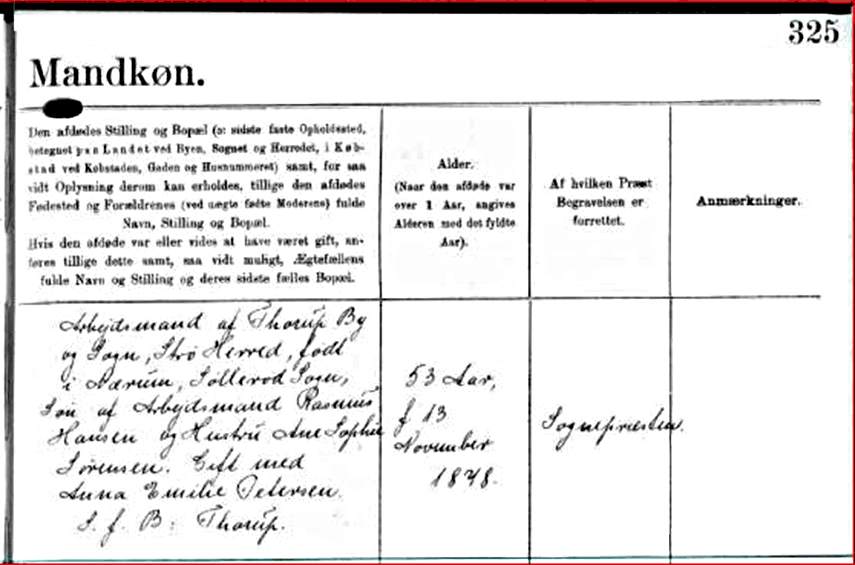 325
Mandkøn.
Den afdødes Stilling og Bopæl (ɔ: sidste faste Opholdssted,
betegnet paa Landet ved Byen, Sognet og Herredet, i Køb-
stad ved Købstaden, Gaden og Husnummeret) samt, for saa
vidt Oplysning derom kan erholdes, tillige den afdødes
Fødested og Forældrenes (ved uægte fødte Moderens) fulde
Navn, Stilling og Bopæl.
Hvis den afdøde var eller vides at have været gift, an-
føres tillige dette samt, saa vidt muligt, Ægtefællens
fulde Navn og Stilling og deres sidste fælles Bopæl.
Alder.
(Naar den afdøde var
over 1 Aar, angives
Alderen med det fyldte
Aar).
Af hvilken Præst
Begravelsen er
forrettet.
Anmærkninger.
Arbejdsmand af Thorup By
og Sogn, Strø Herred, født
i Nærum, Søllerød Sogn,
Søn af Arbejdsmand Rasmus
Hansen og Hustru Ane Sophie
Sørensen. Gift med
Anna Emilie Petersen.
S. f. B: Thorup.
53 Aar,
f 13
November
1878.
Sognepræsten.